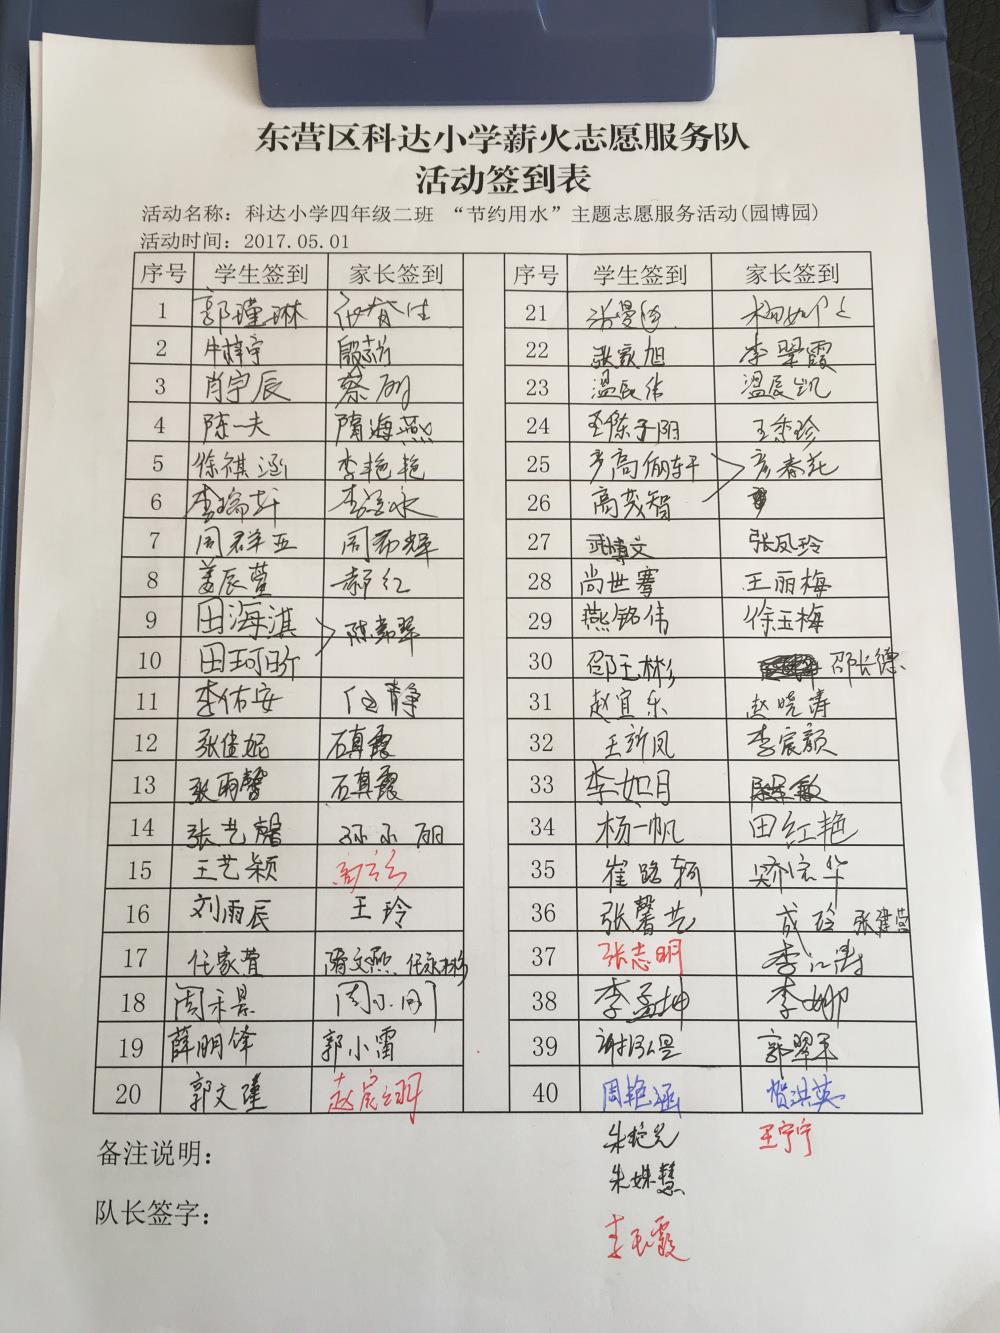 东营区科达小学薪火志愿服务队
活动签到表
活动名称：科达小学四年级二班 “节约用水”主题志愿服务活动(园博园)
活动时间：2017.05.01
序号 学生签到 家长签到 序号 学生签到 家长签到
1 郭瑾琳 21
2 牛梓宇 22 张家旭 李翠霞
3 肖宇辰 蔡 23 温辰伟 温辰凯
4 陈一夫 隋海燕 24 王陈子阳 王秀珍
5 徐祺涵 李艳艳 25 高俪轩 彦春花
6 李瑞轩 26 高茂智
7 周群亚 周希辉 27 武博文 张凤玲
8 姜辰萱 郝红 28 尚世骞 王丽梅
9 田海淇 29 燕铭伟 徐玉梅
10 田珂昕 30 邵玉彬 邵长德
11 李佑安 任静 31 赵宜乐 赵晓涛
12 石真霞 32 王新凤 李宸颜
13 张雨馨 石真霞 33 李如月 敏
14 张艺馨 孙小丽 34 杨一帆 田红艳
15 王艺颖 35 崔
16 刘雨辰 王玲 36 张馨艺 成玲 张建营
17 任家萱 隋文燕 37 张志明 李江涛
18 周 38 李孟坤 李娜
19 薛明锋 郭小雷 39 谢泓昱 郭翠平
20 郭文瑾 赵 40 周艳涵 贺洪英
朱 王宁宁
备注说明：
朱姝慧
队长签字：
李玉霞